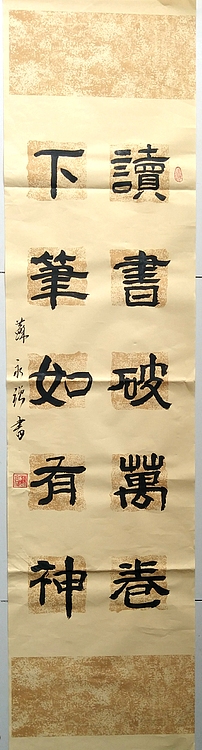 讀書破萬卷
下筆如有神
蘇永強書